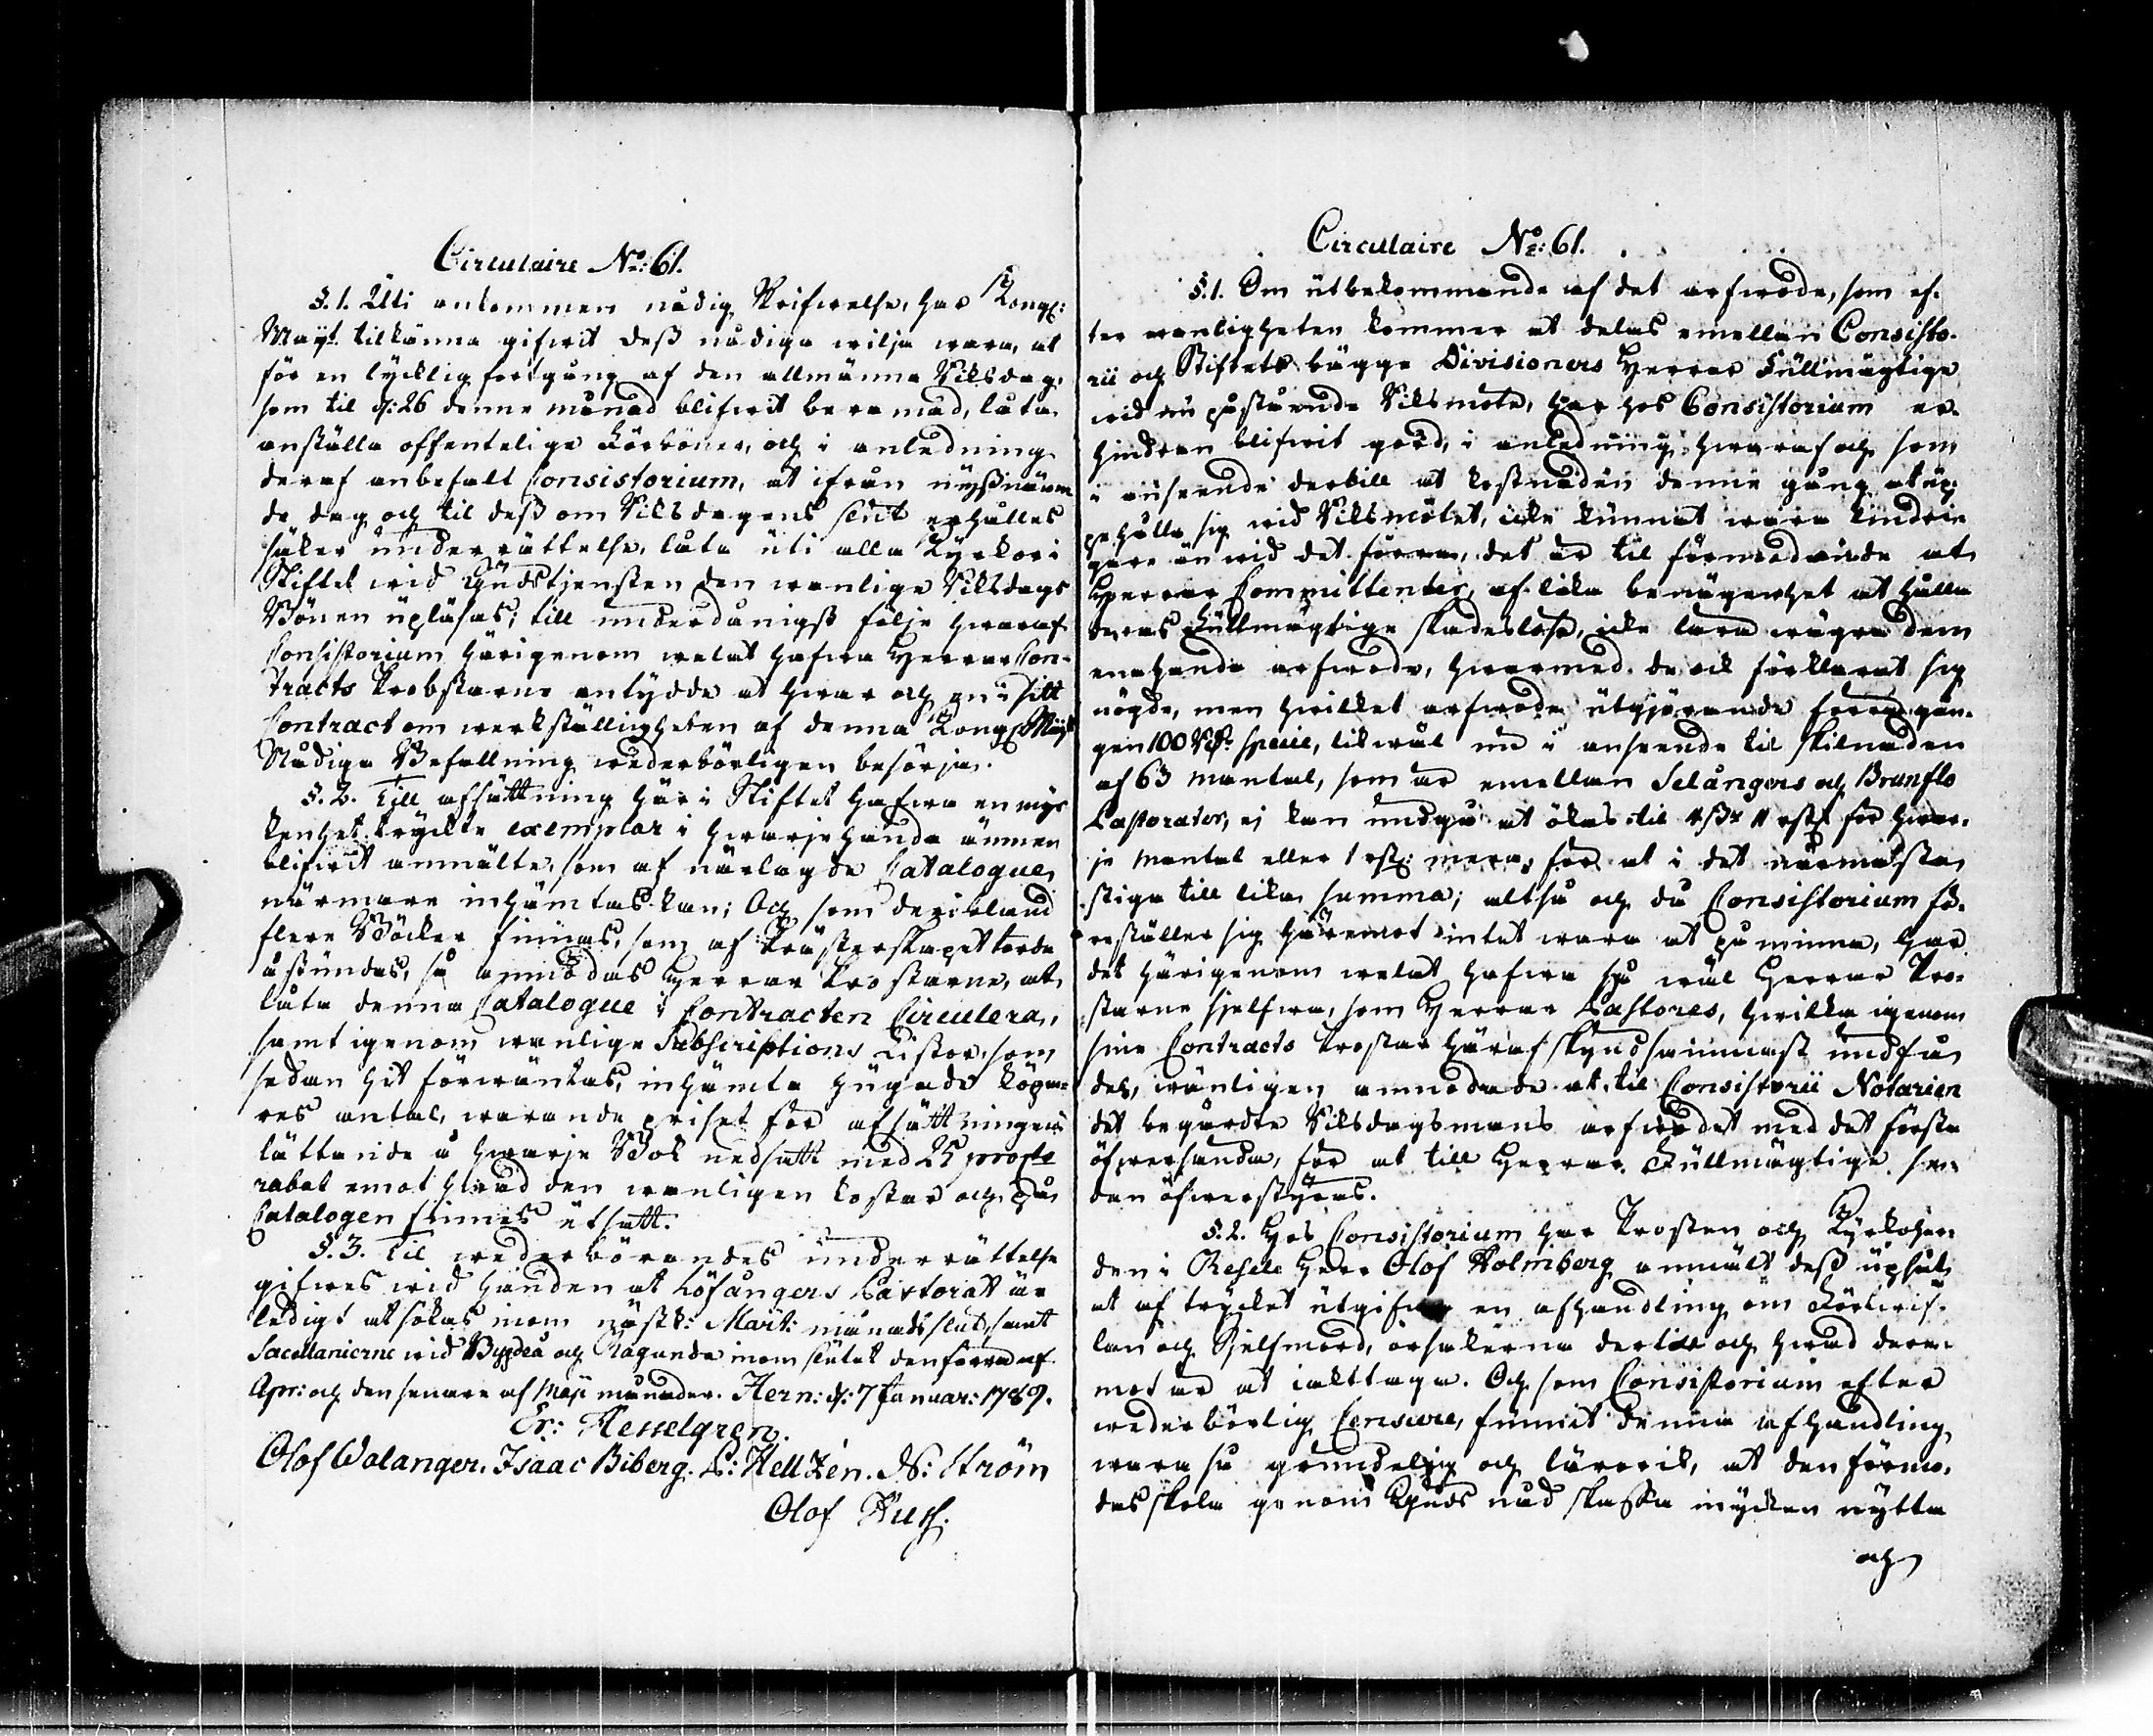 Circulaire No: 61.
§. 1. Uti ankommen nådig Skrifwelse, har Kongl:
Mayt. tilkänna gifwit dess nådiga wilja wara, at
för en lycklig fortgång af den allmänna Riksdag,
som til d: 26 denne månad blifwit beramad, låta
anställa offentelige Förböner, och i anledning
deraf anbefalt Consistorium, at ifrån nyssnämn
de dag och til dess om Riksdagens slut erhålles
säker underrättelse, låta uti alla Kyrkor i
Stiftet wid Gudstjensten den wanlige Riksdags
Bönen upläsas; till underdånigst följe hwaraf
Consistorium härigenom welat hafwa Herrar Con-
tracts Probstarne antydde at hwar och en i sitt
Contract om werkställigheten af denna Kongl. Mayts
Nådiga Befallning wederbörligen besörja.
§. 2. Till afsättning här i Stiftet hafwa en myc
kenhet tryckte exemplar i hwarjehanda ämnen
blifwit anmälte, som af närlagde Catalogue,
närmare inhämtas kan; Och som deribland
flere Böcker finnas, som af Prästerskapet torde
åstundas, så anmodas Herrar Prostarne, at
låta denna Catalogue i Contracten Circulera,
samt igenom wanlige Subscriptions Listor, som
sedan hit förwäntas, inhämta hugade köpa-
res antal, warande priset för afsättningens
lättande å hwarje Bok nedsatt med 25 procte
rabat emot hwad den wanligen kostar och på
Catalogen finnes utsatt.
§. 3. Til wederbörandes underrättelse
gifwes wid handen at Löfångers Pastorat är
ledigt at sökas inom nästk: Mart: månads slut, samt
Sacellanierne wid Bygdeå och Ragunda inom slutet den förra af
Apr: och den senare af Maji månader. Hern: d: 7 Januar: 1789.
Er: Hesselgren.
Olof Walanger. Isaac Biberg. P: Hellzén. N: Ström
Olof Huss.
Circulaire No: 61.
§. 1. Om utbekommande af det arfwode, som ef-
ter wanligheten kommer at delas emellan Consisto-
rii och Stiftets bägge Divisioners Herrar Fullmägtige
wid nu påstående Riksmöte, har hos Consistorium er-
hindran blifwit gord, i anledning hwaraf och som
i anseende dertill at kostnaden denne gång at up-
pehålla sig wid Riksmötet, icke kunnat wara lindri-
gare än wid det förra, det är til förmodande at
Herrar Committenter, af lika benägenhet at hålla
deras Fullmägtige skadeslöse, icke lära wägra dem
enahanda arfwode, hwarmed de ock förklarat sig
nögde, men hwilket arfwode utgjörande förra gån-
gen 100 Rd. specie, likwäl nu i anseende til skilnaden
af 63 mantal, som är emellan Selångers och Brunflo
Pastorater, ej kan undgå at ökas til 4 sk 11 rst för hwar-
je mantal eller 1 rst: mera, för at i det närmaste
stiga till lika summa; altså och då Consistorium fö-
reställer sig häremot intet wara at påminna, har
det härigenom welat hafwa så wäl Herrar Pro-
starne sjelfwa, som Herrar Pastores, hwilka igenom
sine Contracts Prostar häraf skyndsammast undfå
del, wänligen anmodade at til Consistorii Notarien
det begärdte Riksdagsmans arfwodet med det första
öfwersända, för at till Herrar Fullmägtige se-
dan öfwerstyras.
§. 2. Hos Consistorium har Prosten och Kyrkoher-
den i Resele Herr Olof Holmberg anmält dess upsåt
at af trycket utgifwa en afhandling om Förtwif-
lan och Sjelfmord, orsakerna dertill och hwad dere-
mot är at iakttaga. Och som Consistorium efter
wederbörlig Censure, funnit denna afhandling
wara så grundelig och lärorik, at den förmo-
das skola genom Guds nåd skaffa mycken nytta
och